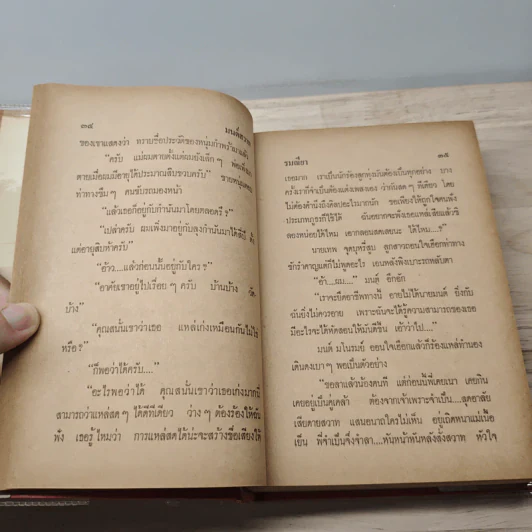 ๓๘
มนต์สวาท
ของเขาแสดงว่า ทราบชื่อประวัติของหนุ่มกำพร้ามาแล้ว
“ครับ แม่ผมตายตั้งแต่ผมยังเล็ก ๆ พ่อพึ่ง
ตายเมื่อผมมีอายุได้ประมาณสิบขวบครับ” ชายหนุ่มตอบ
ท่าทางซึม ๆ คนขับรถมองหน้า
“แล้วเธอก็อยู่กับกำนันมาโดยตลอดรึ ?”
“เปล่าครับ ผมเพิ่งมาอยู่กับลุงกำนันมาได้สี่ปี ตั้ง
แต่อายุสิบห้าครับ”
“อ้าว....แล้วก่อนนั้นอยู่กับใคร ?”
“อาศัยเขาอยู่ไปเรื่อย ๆ ครับ บ้านบ้าง วัด
บ้าง”
“คุณสนั่นเขาว่าเธอ แหล่เก่งเหมือนกันไม่ใช่
หรือ ?”
“ก็พอว่าได้ครับ....”
“อะไรพอว่าได้ คุณสนั่นเขาว่าเธอเก่งมากนี่
สามารถว่าแหล่สด ๆ ได้ดีทีเดียว ว่าง ๆ ต้องร้องให้ฉัน
ฟัง เธอรู้ไหมว่า การแหล่สดได้น่ะจะสร้างชื่อเสียงให้
รพเลียา
๓๕
เธอมาก เราเป็นนักร้องลูกทุ่งมันต้องเป็นทุกอย่าง บาง
ครั้งเราก็จำเป็นต้องแต่งเพลงเอง ว่ากันสด ๆ ทีเดียว โดย
ไม่ต้องคำนึงถึงศิลปอะไรมากนัก ขอเพียงให้ถูกใจคนฟัง
ประเภทภูธรก็ใช้ได้ ฉันอยากจะฟังเธอแหล่เสียแล้วซิ
ลองหน่อยได้ไหม เอากลอนสดเลยนะ ได้ไหม....?”
นายเทพ จุดบุศรี่ชุม ลูกสาวถอนใจเฮือกทำทาง
ชักรำคาญแต่ก็ไม่พูดอะไร เอนหลังพิงเบาะรถหลับตา
“อ้า....ผม....” มนต์ อึกอัก
“เราจะยึดอาชีพทางนี้ อายไม่ได้นายมนต์ ยิ่งกับ
ฉันยิ่งไม่ควรอาย เพราะฉันจะได้รู้ความสามารถของเธอ
มีอะไรจะได้ดัดสอนให้มันดีขึ้น เอ้าว่าไป....”
มนต์ มโนรมย์ ถอนใจเฮือกแล้วก็ร้องแหล่ทำนอง
เดินดงเบา ๆ พอเป็นตัวอย่าง
“ขอลาแล้วน้องคนดี แต่ก่อนนี้พี่เคยเนา เคยกิน
เคยอยู่เป็นคู่เคล้า ต้องจากเจ้าเพราะจำเป็น....สุดอาลัย
เสียดายสวาท แสนอนาถใครไม่เห็น อยู่เถิดหนาแม่เนื้อ
เย็น พี่จำเป็นจึงจำลา....หันหน้าหันหลังสั่งสวาท หัวใจ